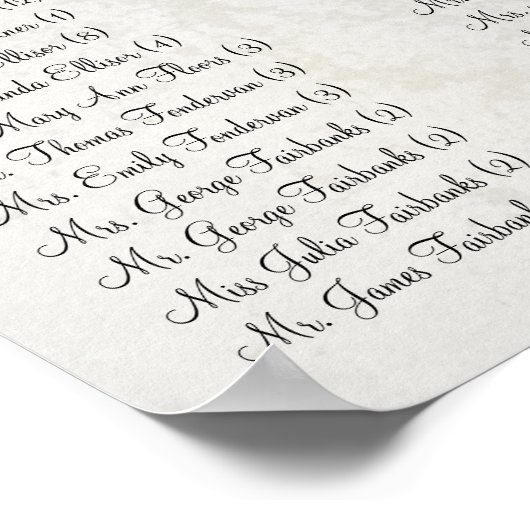 (8)
Ellisor (4)
Mary Ann Floors (3)
Thomas Fondervan (3)
Mrs. Emily Fondervan (3)
Mrs. George Fairbanks (2)
Mr. George Fairbanks (2)
Miss Julia Fairbanks (2)
Mr. James
Mrs.